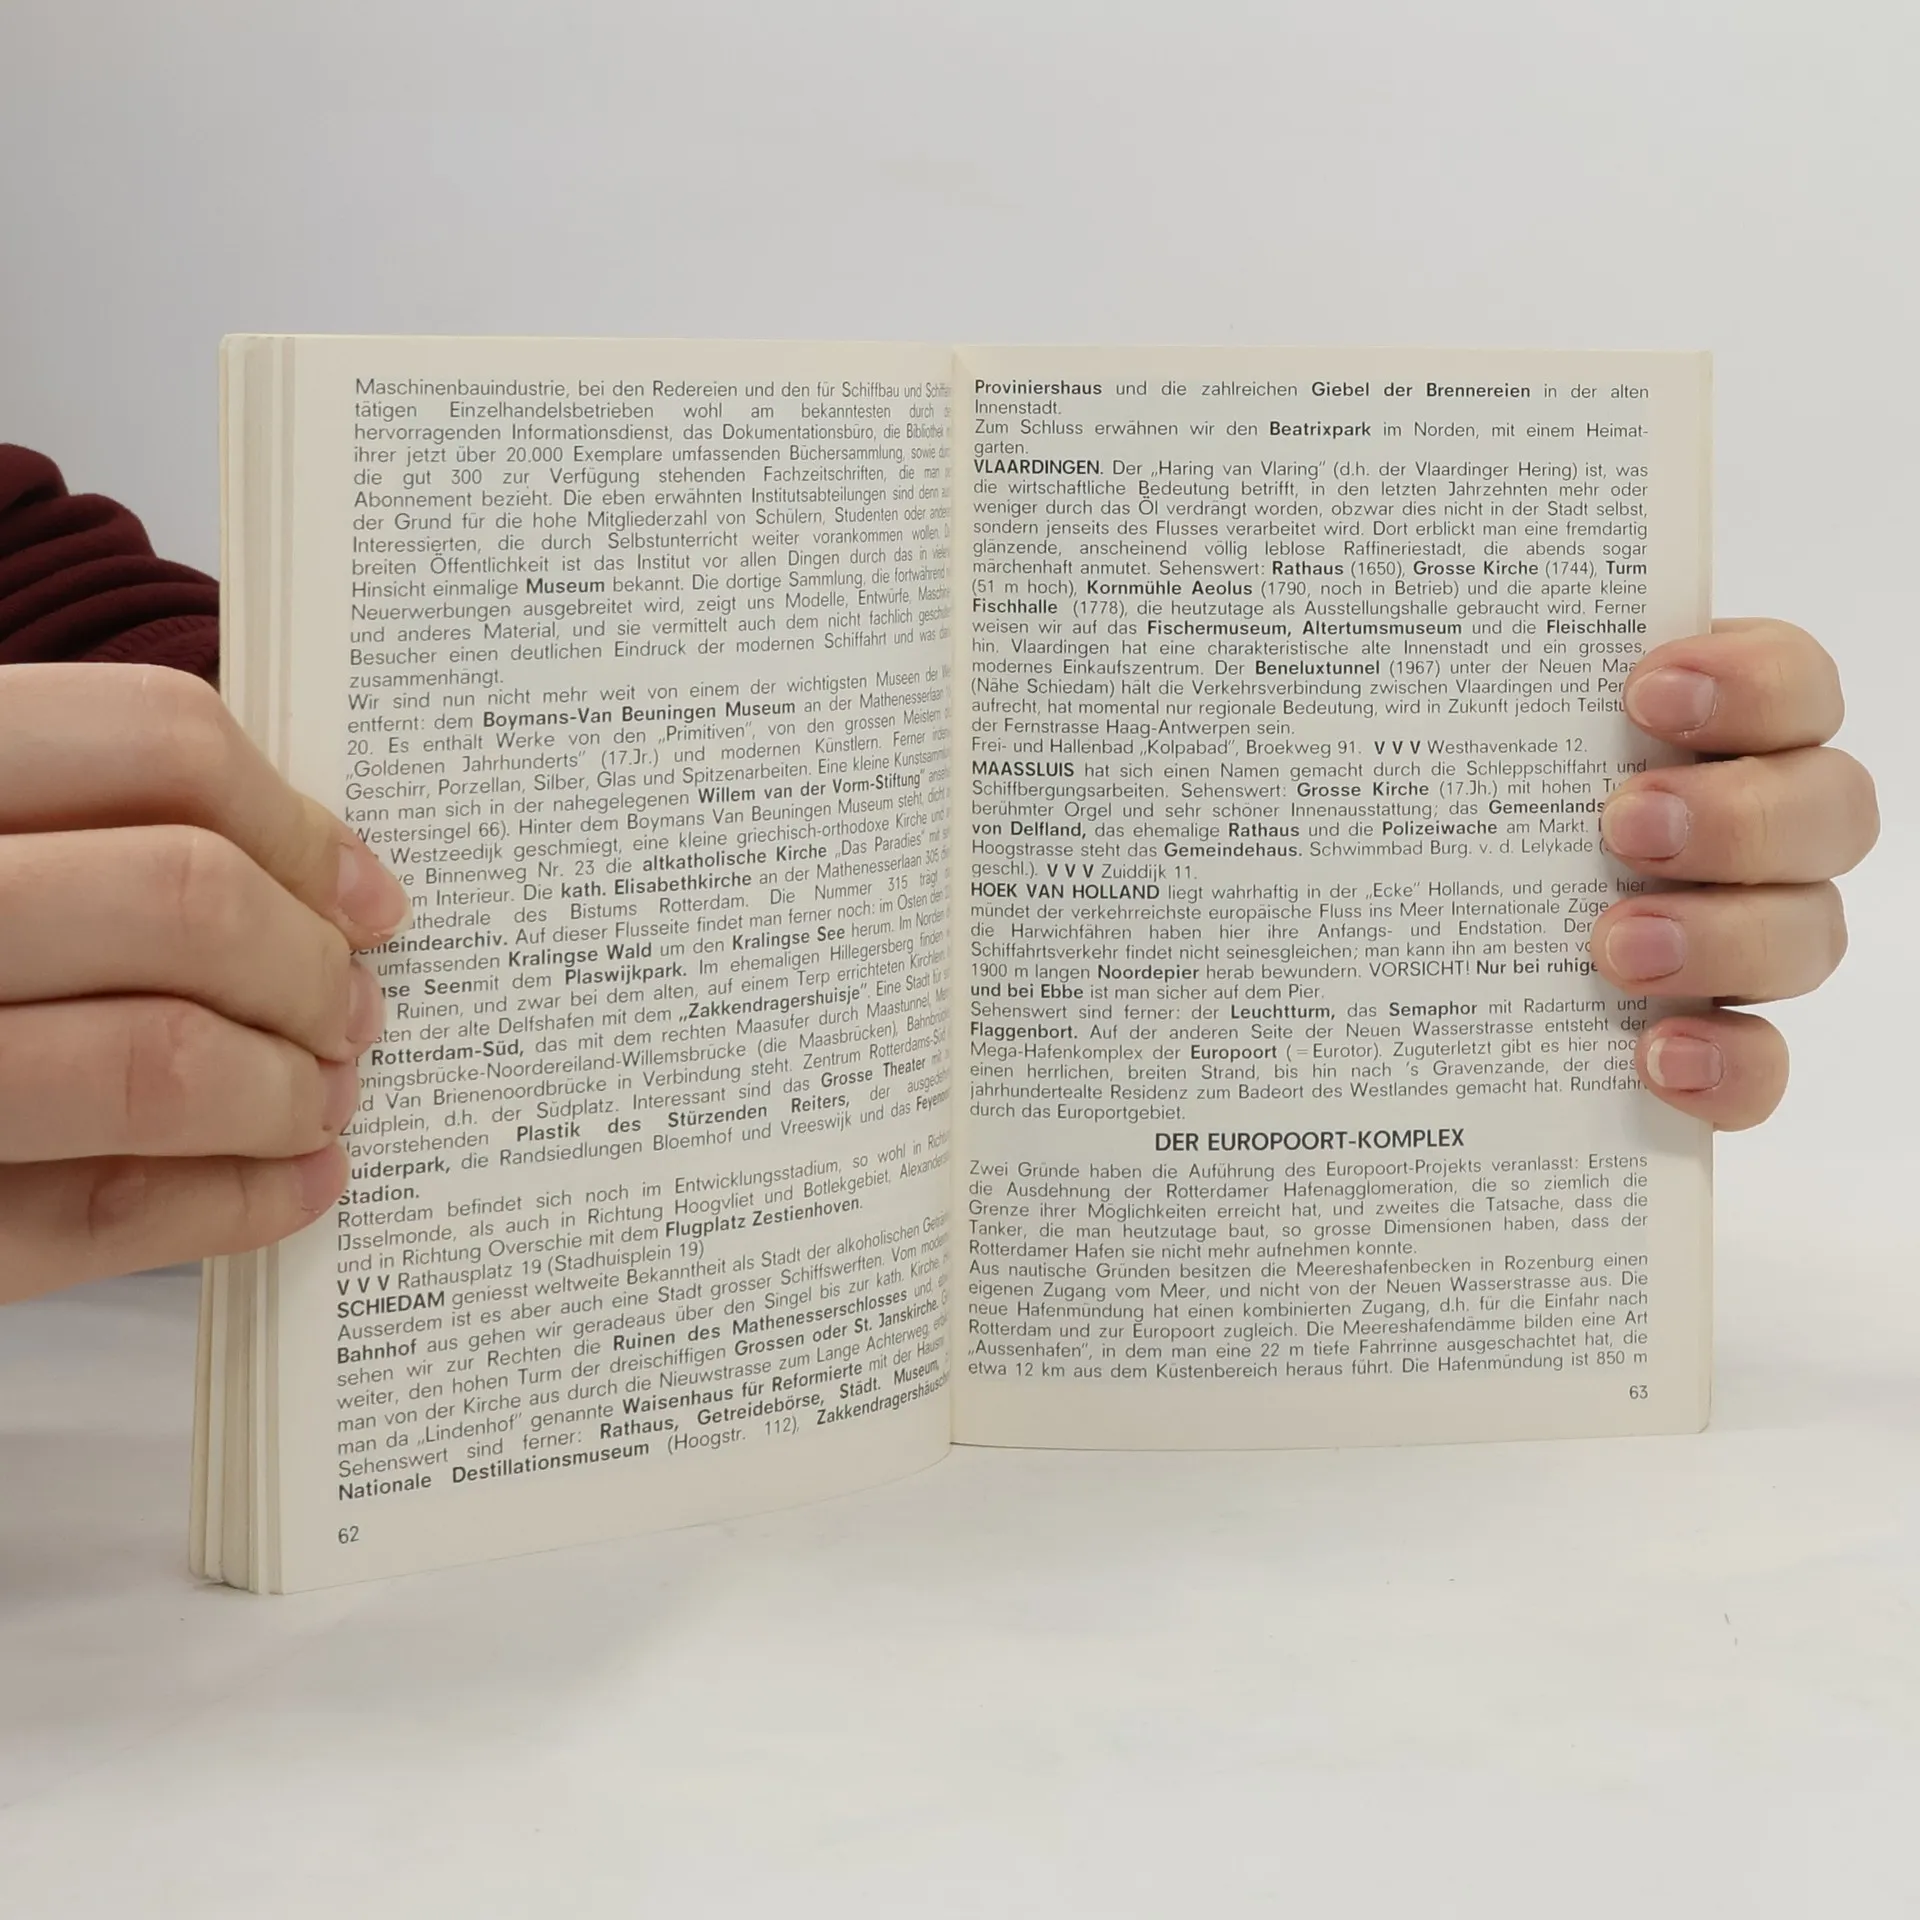 Maschinenbauindustrie, bei den Redereien und den für Schiffbau und
tätigen Einzelhandelsbetrieben wohl am bekanntesten durch
hervorragenden Informationsdienst, das Dokumentationsbüro, die Bibliothek
ihrer jetzt über 20.000 Exemplare umfassenden Büchersammlung, sowie
die gut 300 zur Verfügung stehenden Fachzeitschriften, die man
Abonnement bezieht. Die eben erwähnten Institutsabteilungen sind denn
der Grund für die hohe Mitgliederzahl von Schülern, Studenten oder
Interessierten, die durch Selbstunterricht weiter vorankommen wollen.
breiten Öffentlichkeit ist das Institut vor allen Dingen durch das in
Hinsicht einmalige Museum bekannt. Die dortige Sammlung, die fortwährend
Neuerwerbungen ausgebreitet wird, zeigt uns Modelle, Entwürfe,
und anderes Material, und sie vermittelt auch dem nicht fachlich
Besucher einen deutlichen Eindruck der modernen Schiffahrt und was
zusammenhängt.
Wir sind nun nicht mehr weit von einem der wichtigsten Museen der
entfernt: dem Boymans-Van Beuningen Museum an der Mathenesserlaan
20. Es enthält Werke von den „Primitiven", von den grossen Meistern
„Goldenen Jahrhunderts" (17.Jr.) und modernen Künstlern. Ferner
Geschirr, Porzellan, Silber, Glas und Spitzenarbeiten. Eine kleine
kann man sich in der nahegelegenen Willem van der Vorm-Stiftung"
Westersingel 66). Hinter dem Boymans Van Beuningen Museum steht, dicht
Westzeedijk geschmiegt, eine kleine griechisch-orthodoxe Kirche und
Binnenweg Nr. 23 die altkatholische Kirche „Das Paradies" mit
Interieur. Die kath. Elisabethkirche an der Mathenesserlaan 305
des Bistums Rotterdam. Die Nummer 315 trägt
Auf dieser Flusseite findet man ferner noch: im Osten den
umfassenden Kralingse Wald um den Kralingse See herum. Im Norden
Seenmit dem Plaswijkpark. Im ehemaligen Hillegersberg finden
Ruinen, und zwar bei dem alten, auf einem Terp errichteten Kirchlein.
der alte Delfshafen mit dem „Zakkendragershuisje". Eine Stadt für
Rotterdam-Süd, das mit dem rechten Maasufer durch Maastunnel,
-Noordereiland-Willemsbrücke (die Maasbrücken),
Van Brienenoordbrücke in Verbindung steht. Zentrum Rotterdams-Süd
Zuidplein, d.h. der Südplatz. Interessant sind das Grosse Theater mit
davorstehenden Plastik des Stürzenden Reiters, der
die Randsiedlungen Bloemhof und Vreeswijk und das
Stadion.
Rotterdam befindet sich noch im Entwicklungsstadium, so wohl in
IJsselmonde, als auch in Richtung Hoogvliet und Botlekgebiet,
und in Richtung Overschie mit dem Flugplatz Zestienhoven.
V V V Rathausplatz 19 (Stadhuisplein 19)
SCHIEDAM geniesst weltweite Bekanntheit als Stadt der alkoholischen
Ausserdem ist es aber auch eine Stadt grosser Schiffswerften. Vom
Bahnhof aus gehen wir geradeaus über den Singel bis zur kath. Kirche.
sehen wir zur Rechten die Ruinen des Mathenesserschlosses und,
weiter, den hohen Turm der dreischiffigen Grossen oder St. Janskirche.
man von der Kirche aus durch die Nieuwstrasse zum Lange Achterweg,
man da „Lindenhof" genannte Waisenhaus für Reformierte mit der
Sehenswert sind ferner: Rathaus, Getreidebörse, Städt. Museum,
Nationale Destillationsmuseum (Hoogstr. 112),
62
Proviniershaus und die zahlreichen Giebel der Brennereien in der alten
Innenstadt.
Zum Schluss erwähnen wir den Beatrixpark im Norden, mit einem Heimat-
garten.
VLAARDINGEN. Der „Haring van Vlaring" (d.h. der Vlaardinger Hering) ist, was
die wirtschaftliche Bedeutung betrifft, in den letzten Jahrzehnten mehr oder
weniger durch das Öl verdrängt worden, obzwar dies nicht in der Stadt selbst,
sondern jenseits des Flusses verarbeitet wird. Dort erblickt man eine fremdartig
glänzende, anscheinend völlig leblose Raffineriestadt, die abends sogar
märchenhaft anmutet. Sehenswert: Rathaus (1650), Grosse Kirche (1744), Turm
(51 m hoch), Kornmühle Aeolus (1790, noch in Betrieb) und die aparte kleine
Fischhalle (1778), die heutzutage als Ausstellungshalle gebraucht wird. Ferner
weisen wir auf das Fischermuseum, Altertumsmuseum und die Fleischhalle
hin. Vlaardingen hat eine charakteristische alte Innenstadt und ein grosses,
modernes Einkaufszentrum. Der Beneluxtunnel (1967) unter der Neuen
(Nähe Schiedam) hält die Verkehrsverbindung zwischen Vlaardingen und
aufrecht, hat momental nur regionale Bedeutung, wird in Zukunft jedoch
der Fernstrasse Haag-Antwerpen sein.
Frei- und Hallenbad „Kolpabad", Broekweg 91. V V V Westhavenkade 12.
MAASSLUIS hat sich einen Namen gemacht durch die Schleppschiffahrt und
Schiffbergungsarbeiten. Sehenswert: Grosse Kirche (17.Jh.) mit hohen
berühmter Orgel und sehr schöner Innenausstattung; das
von Delfland, das ehemalige Rathaus und die Polizeiwache am Markt.
Hoogstrasse steht das Gemeindehaus. Schwimmbad Burg. v. d. Lelykade
geschl.). V V V Zuiddijk 11.
HOEK VAN HOLLAND liegt wahrhaftig in der „Ecke" Hollands, und gerade hier
mündet der verkehrreichste europäische Fluss ins Meer Internationale Züge
die Harwichfähren haben hier ihre Anfangs- und Endstation. Der
Schiffahrtsverkehr findet nicht seinesgleichen; man kann ihn am besten
1900 m langen Noordepier herab bewundern. VORSICHT! Nur bei
und bei Ebbe ist man sicher auf dem Pier.
Sehenswert sind ferner: der Leuchtturm, das Semaphor mit Radarturm und
Flaggenbort. Auf der anderen Seite der Neuen Wasserstrasse entsteht der
Mega-Hafenkomplex der Europoort (=Eurotor). Zuguterletzt gibt es hier
einen herrlichen, breiten Strand, bis hin nach 's Gravenzande, der
jahrhundertealte Residenz zum Badeort des Westlandes gemacht hat. Rundfahrt
durch das Europortgebiet.
DER EUROPOORT-KOMPLEX
Zwei Gründe haben die Auführung des Europoort-Projekts veranlasst: Erstens
die Ausdehnung der Rotterdamer Hafenagglomeration, die so ziemlich die
Grenze ihrer Möglichkeiten erreicht hat, und zweites die Tatsache, dass die
Tanker, die man heutzutage baut, so grosse Dimensionen haben, dass der
Rotterdamer Hafen sie nicht mehr aufnehmen konnte.
Aus nautische Gründen besitzen die Meereshafenbecken in Rozenburg einen
eigenen Zugang vom Meer, und nicht von der Neuen Wasserstrasse aus. Die
neue Hafenmündung hat einen kombinierten Zugang, d.h. für die Einfahr nach
Rotterdam und zur Europoort zugleich. Die Meereshafendämme bilden eine Art
„Aussenhafen", in dem man eine 22 m tiefe Fahrrinne ausgeschachtet hat, die
etwa 12 km aus dem Küstenbereich heraus führt. Die Hafenmündung ist 850 m
63